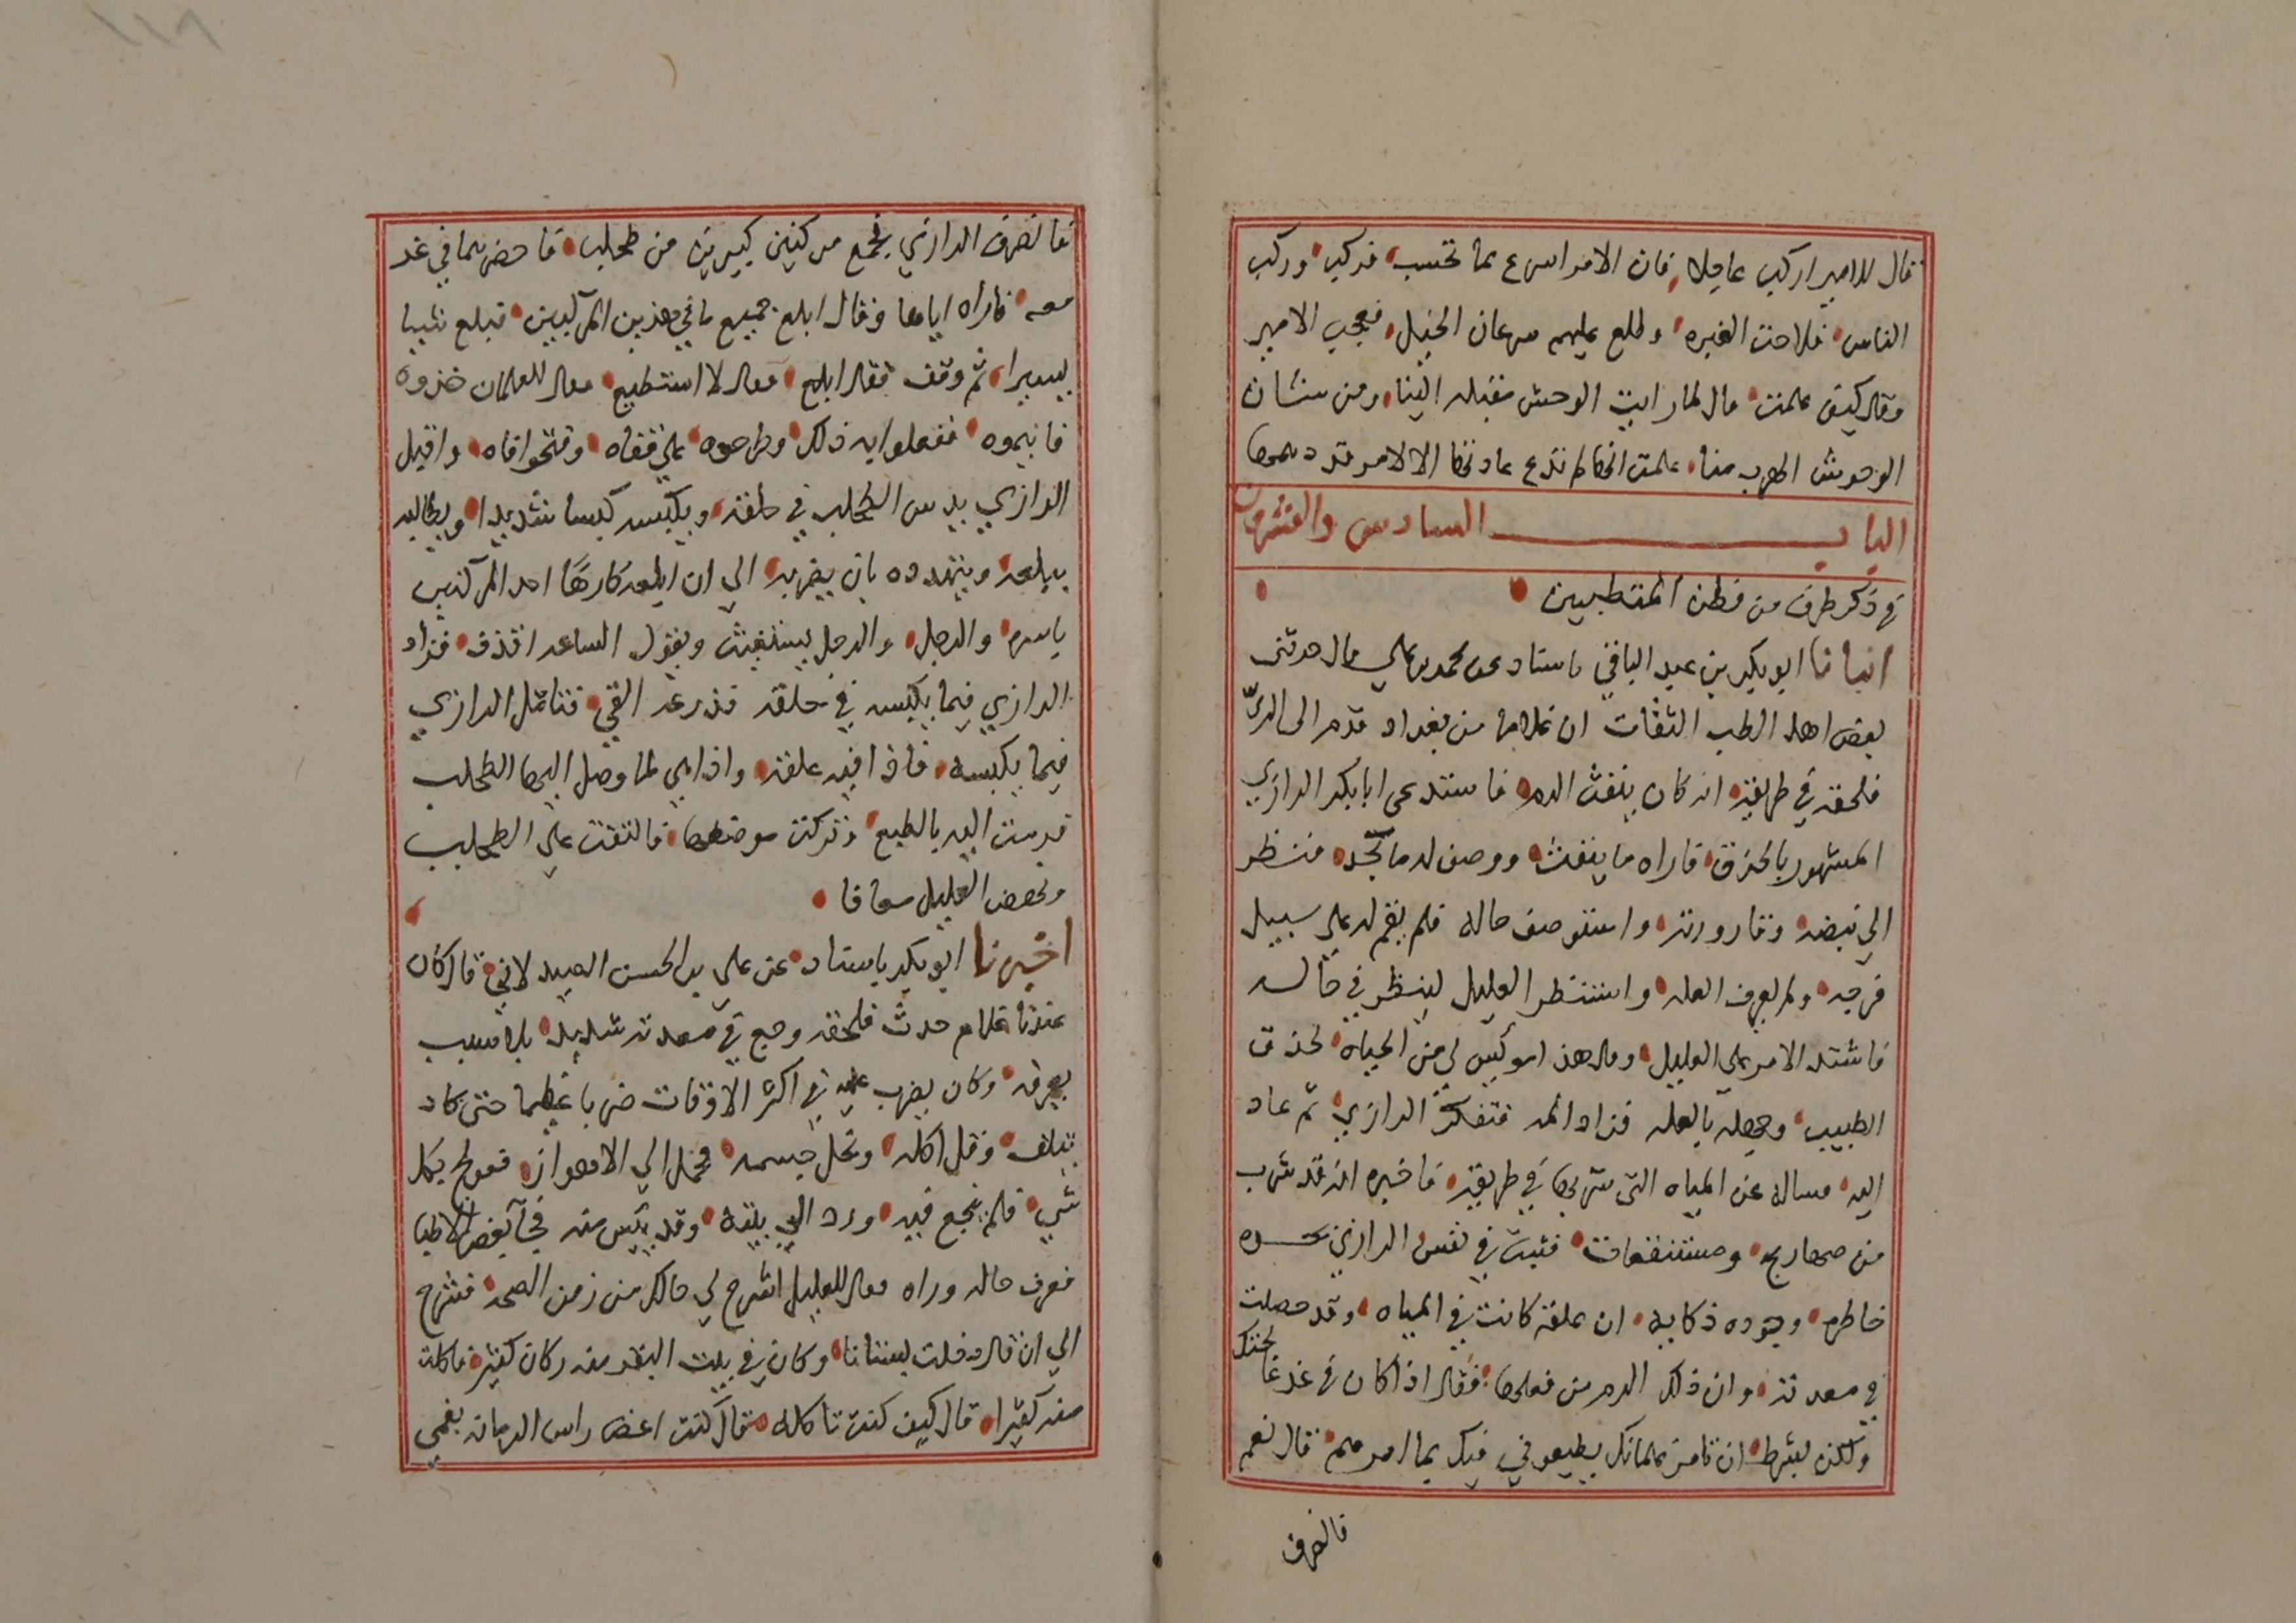 قال للامير اركب عاجلا فان الامر اسرع مما تحسب فركب وركب
الناس فلاحت الغبره وطلع عليهم سرعان الخيل فعجب الامير
وقال كيف علمت قال لما رايت الوحش مقبله الينا ومن شان
الوحوش الهرب منا علمت انها لم تدع عادتها الا لامر قد دهمها
الباب السادس والعشرون
في ذكر طرف من فطن المتطببين
انبانا ابو بكر بن عبد الباقي باسناد عن محمد بن علي قال حدثني
بعض اهل الطب الثقات ان غلاما من بغداد قدم الى الري
فلحقه في طريقه انه كان ينفث الدم فاستدعى ابا بكر الرازي
المشهور بالحذق فاراه ما ينفث ووصف له ما يجد فنظر
الي نبضه وقارورته واستوصف حاله فلم يقم له علي سبيل
فرجه ولم يعرف العله واستنظر العليل لينظر في حاله
فاشتد الامر علي العليل وقال هذا موئيس لي من الحياه لحذق
الطبيب وجهله بالعله فزاد المه فتفكر الرازي ثم عاد
اليه فساله عن المياه التي شربها في طريقه فاخبره انه قد شرب
من صهاريج ومستنقعات فثبت في نفس الرازي بحده
خاطره وجوده ذكايه ان علقه كانت في المياه وقد حصلت
في معدته وان ذلك الدم من فعلها فقال اذا كان في غد عالجتك
ولكن بشرط ان تامر غلمانك يطيعوني فيك بما امرهم قال نعم
فانصرف
فانصرف الرازي فجمع مركنين كبيرين من طحلب فاحضرهما في غد
معه فاراه اياهما وقال ابلع جميع ما في هذين المركبين فبلع شيا
يسيرا ثم وقف فقال ابلع فقال لا استطيع فقال للغلمان خذوه
فانيموه ففعلوا به ذلك وطرحوه علي قفاه وفتحوا فاه واقبل
الرازي يدس الطحلب في حلقه ويكبسه كبسا شديدا ويطالبه
ببلعه ويتهدده بان يضربه الي ان ابلعه كارها احد المركنين
باسره والرجل والرجل يستغيث ويقول الساعه اقذف فزاد
الرازي فيما يكبسه في حلقه فذرعه القي فتامل الرازي
فيما يكبسه فاذا فيه علقه واذا هي لما وصل اليها الطحلب
قربت اليه بالطبع وتركت موضعها فالتفت علي الطحلب
ونهض العليل معافا
اخبرنا ابو بكر باسناد عن علي بن الحسن الصيدلاني قال كان
عندنا غلام حدث فلحقه وجع في معدته شديد بلا سبب
يعرفه وكان يضرب عليه في اكثر الاوقات ضربا عظيما حتى كاد
يتلف وقل اكله ونحل جسمه فحمل الي الاهواز فعولج بكل
شي فلم ينجع فيه ورد الي بلده وقد يئس منه فجا بعض الاطبا
فعرف حاله وراه فقال للعليل اشرح لي حالك من زمن الصحه فشرح
الي ان قال دخلت بستانا وكان في بيت البقر منه ركان كثير فاكلت
منه كثيرا قال كيف كنت تاكله فقال كنت اعض راس الرمانه بفمي